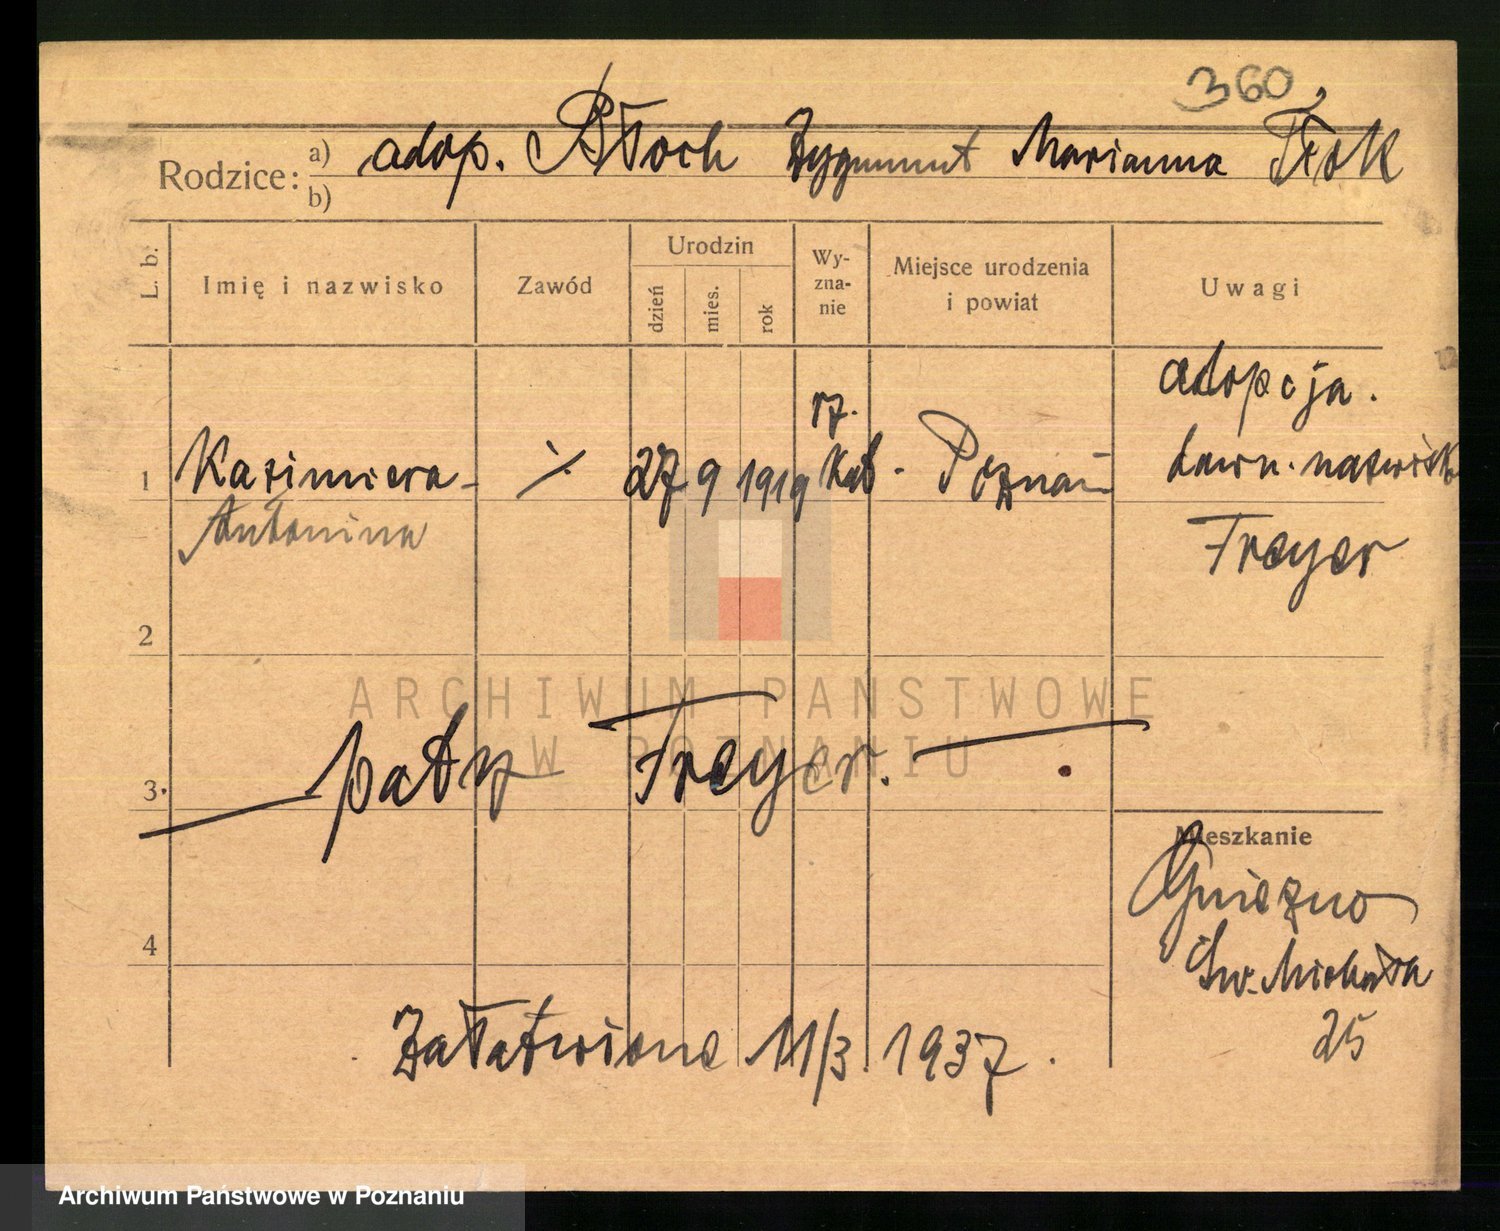 360
adop. Błoch Zygmunt Marianna Tłok
Rodzice: a)
b)
L. b.
Imię i nazwisko
Zawód
Urodzin
dzień
mies.
rok
Wy-
zna-
nie
Miejsce urodzenia
i powiat
Uwagi
adopcja.
rz.
1 Kazimiera- ·/. 27 9 1919 Kat - Poznań dawn. nazwisk
Antonina
Freyer
2
ARCHIWUM PAŃSTWOWE
W POZNANIU
3. patrz Freyer.
Mieszkanie
Gniezno
4
Św. Michała
25
Załatwione 11/3 1937.
Archiwum Państwowe w Poznaniu